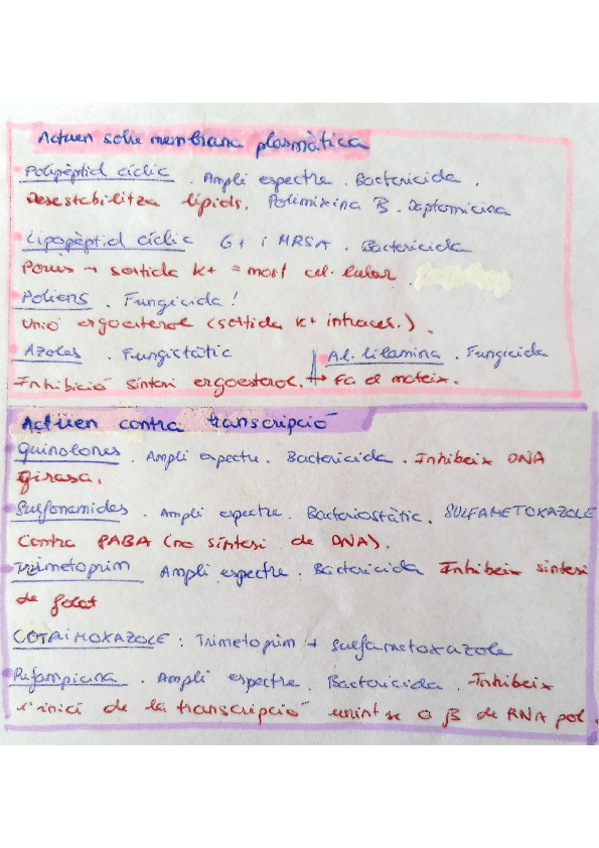 Actuen sobre membrana plasmàtica
Polipèptid cíclic. Ampli espectre. Bactericida.
Desestabilitza lípids. Polimixina B. Daptomicina
Lipopèptid cíclic G+ i MRSA. Bactericida
Porus → sortida K+ = mort cel·lular.
Poliens. Fungicida!
Unió ergoesterol (sortida K+ intracel.).
Azoles. Fungistàtic Al·lilamina. Fungicida
Inhibició síntesi ergoesterol. → Fa el mateix.
Actuen contra transcripció
Quinolones. Ampli espectre. Bactericida. Inhibeix DNA
girasa.
Sulfonamides. Ampli espectre. Bacteriostàtic. SULFAMETOXAZOLE
Contra PABA (no síntesi de DNA).
Trimetoprim Ampli espectre. Bactericida Inhibeix síntesi
de folat
COTRIMOXAZOLE: Trimetoprim + sulfametoxazole
Rifampicina. Ampli espectre. Bactericida. Inhibeix
l'inici de la transcripció unint se a β de RNA pol.